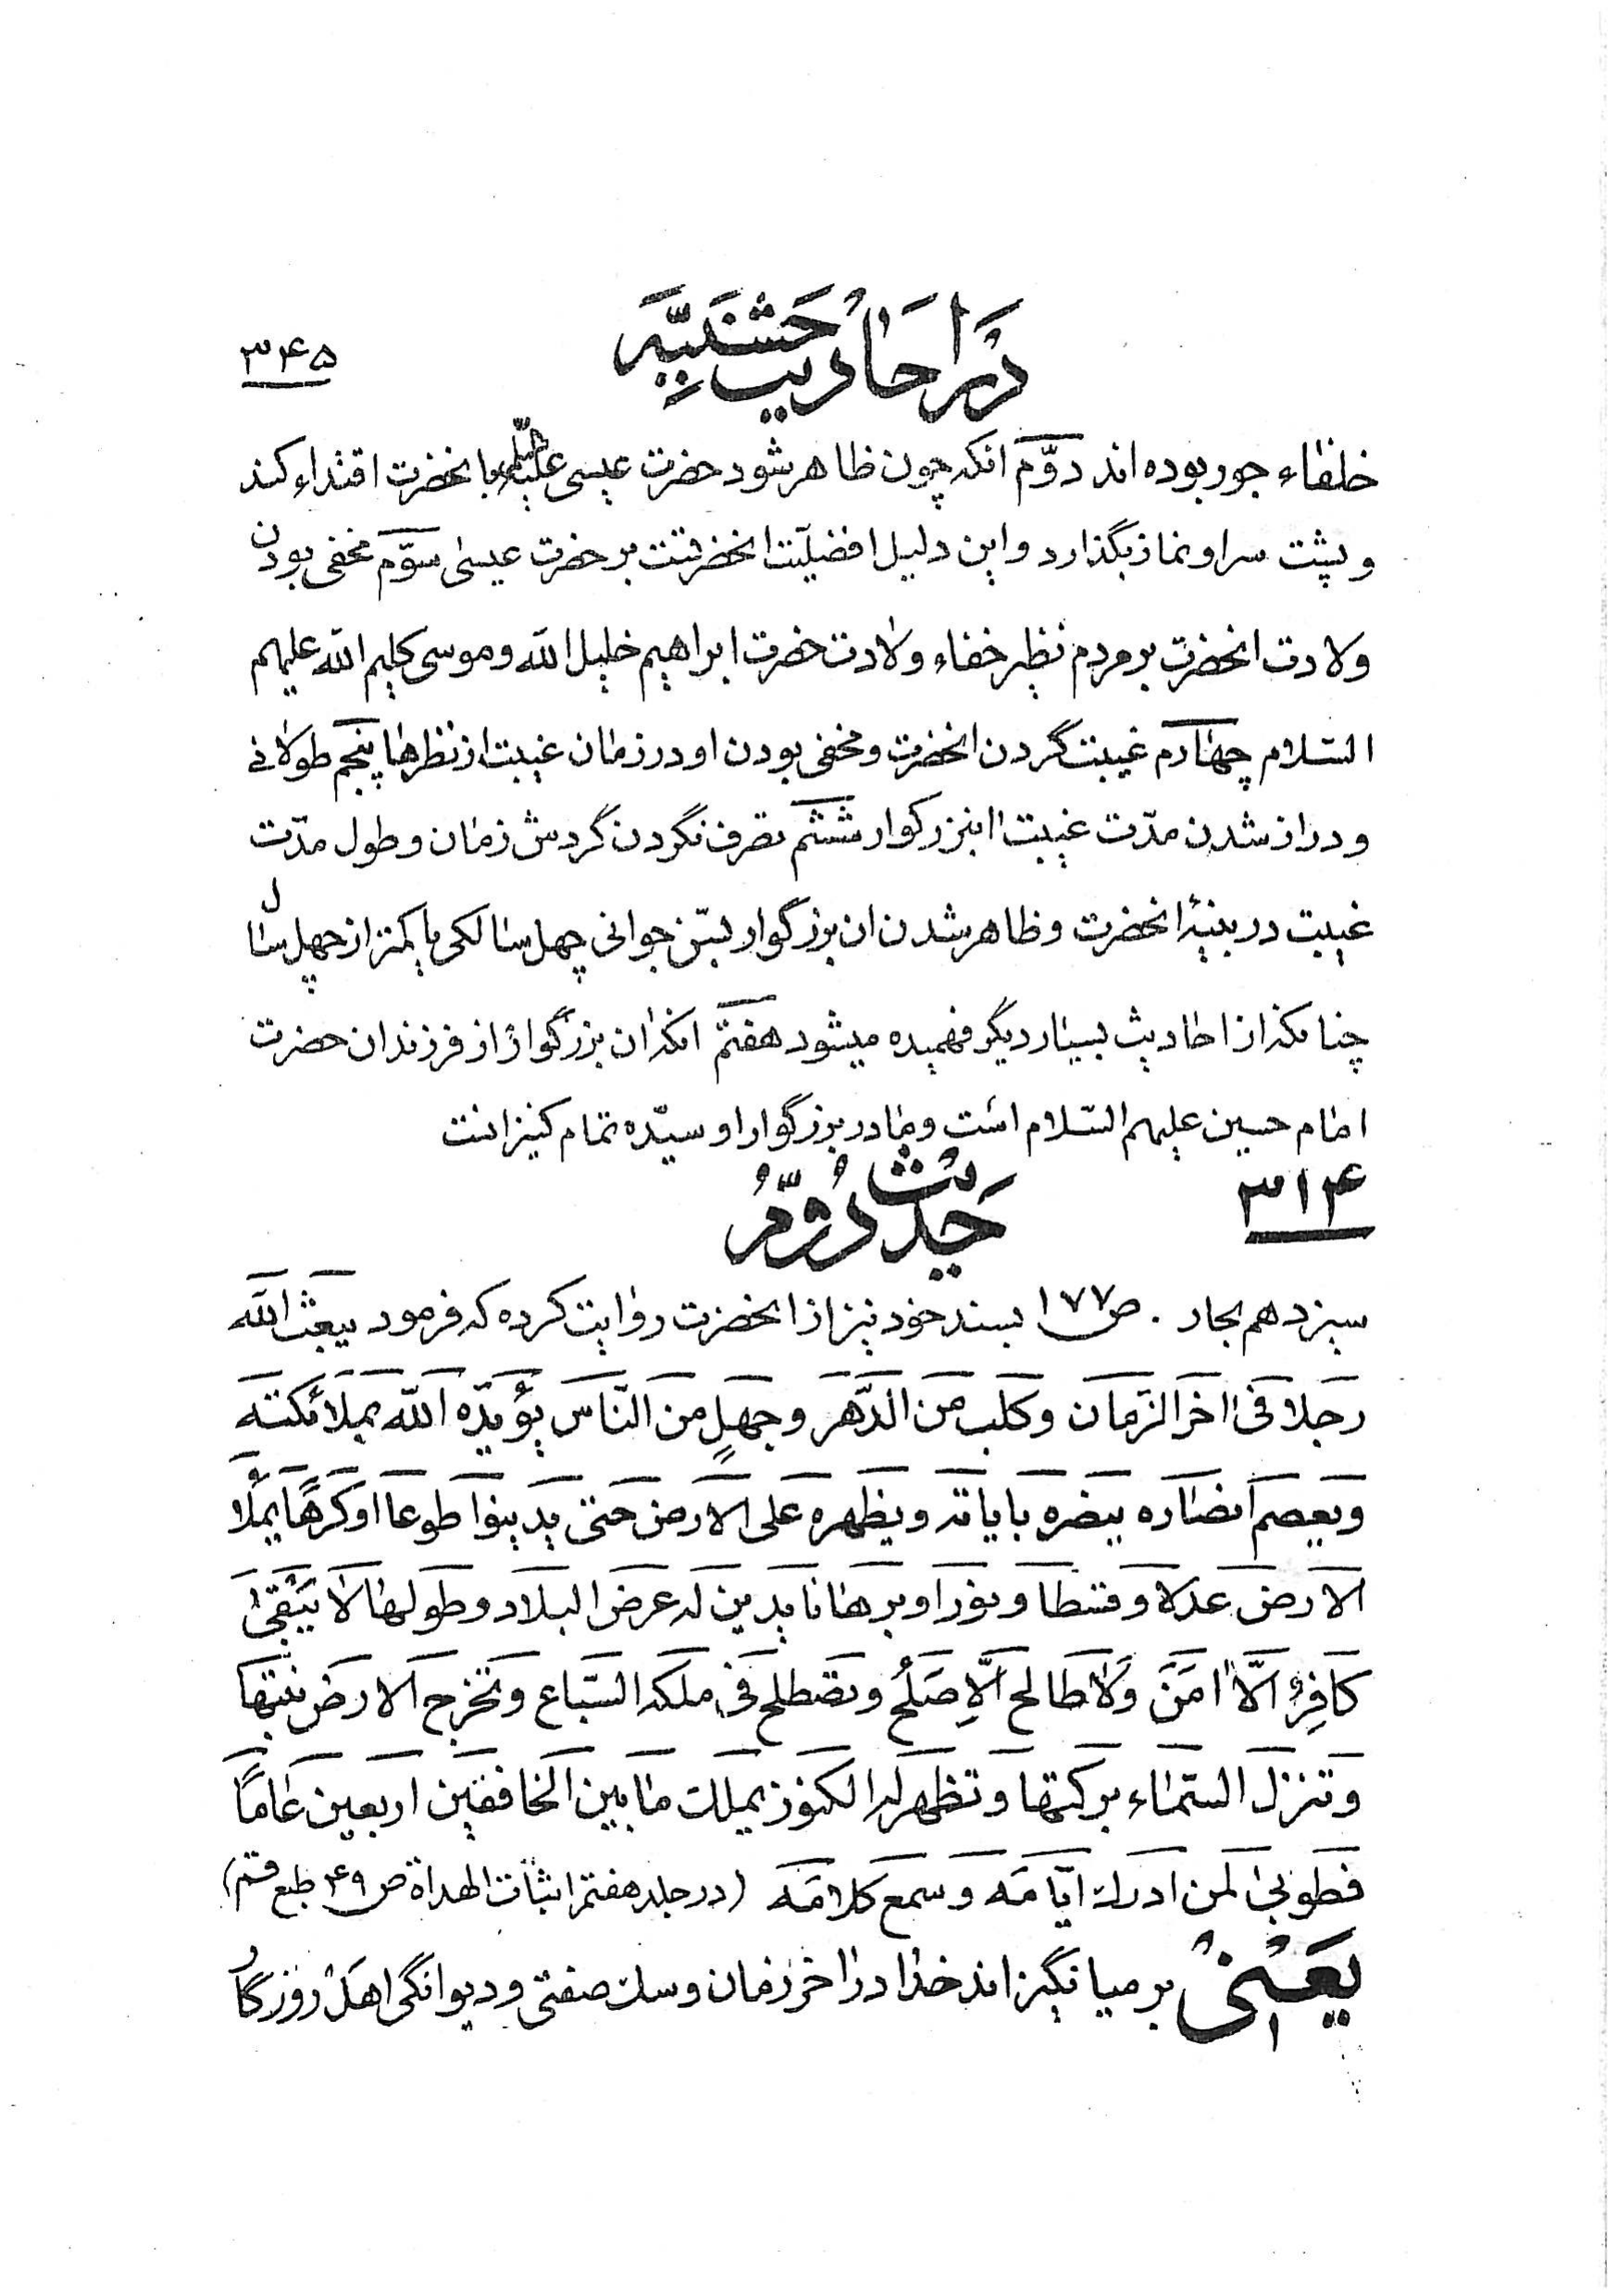 در احادیث حسنیه
۳۴۵
خلفاء جور بوده اند دوّم انکه چون ظاهر شود حضرت عیسی علیه السلام بانحضرت اقتداء کند
و پشت سر او نماز بگذارد و این دلیل افضلیّت انحضرتست بر حضرت عیسی سوّم مخفی بودن
ولادت انحضرت بر مردم نظیر خفاء ولادت حضرت ابراهیم خلیل الله و موسی کلیم الله علیهم
السّلام چهارم غیبت کردن انحضرت و مخفی بودن او در زمان غیبت از نظرها پنجم طولانی
و دراز شدن مدّت غیبت اینزرکوار ششم تصرف نکردن گردش زمان و طول مدّت
غیبت در بنیهٔ انحضرت و ظاهر شدن ان بزرگوار بسّن جوانی چهل سالکی یا کمتر از چهل سال
چنانکه از احادیث بسیار دیگر فهمیده میشود هفتم انکه ان بزرگوار از فرزندان حضرت
امام حسین علیهم السّلام است و مادر بزرگوار او سیّده تمام کنیزانست
۳۱۴
حدیث دوّم
سیزدهم بحار . ص۱۷۷ بسند خود نیز از انحضرت روایت کرده که فرمود یبعث الله
رجلا فی اخر الزمان و کلب من الدّهر و جهلٍ من النّاس یؤیدّه الله بملائکته
و یعصم انصاره ینصره بایاته و یظهره علی الارض حتی یدینوا طوعا او کرهًا یملأ
الارض عدلا و قسطا و نورا و برهانا یدین له عرض البلاد و طولها لا یَبْقی
کافِرٌ الّا امَنَ وَلا طالح الّا صَلُحَ و تصطلح فی ملکه السّباع و تخرج الارض نبتها
و تنزل السّماء برکتها و تظهر له الکنوز یملک ما بین الخافقین اربعین عاماً
فطوبی لمن ادرک ایّامَه و سمع کلامَه (در جلد هفتم اثبات الهداة ص۴۹ طبع قم)
یعنی بر میانگیزاند خدا در اخر زمان و سک صفتی و دیوانگی اهل روزگار